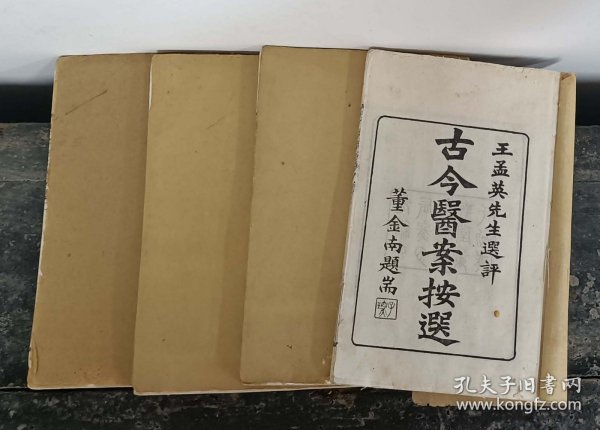 王孟英先生選評
古今醫案按選
董金南題耑
孔夫子旧書网
www.kongfz.com